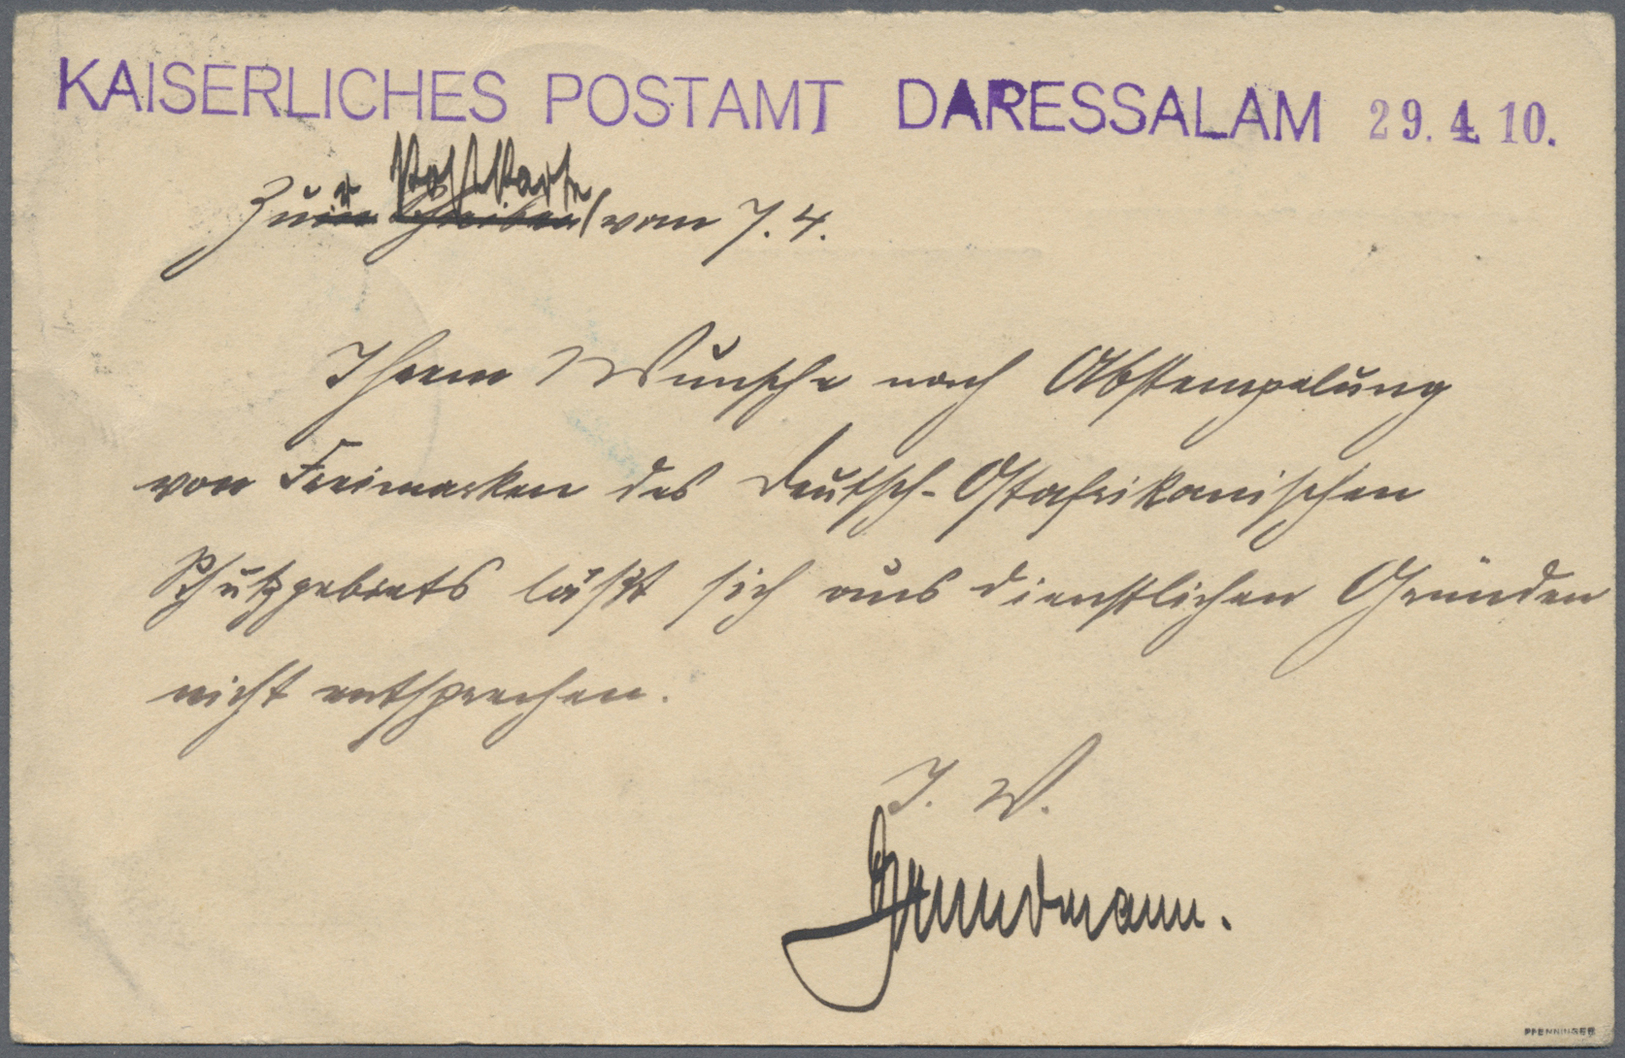 KAISERLICHES POSTAMT DARESSALAM 29.4.10.
Zur Postkarte vom 7. 4.
Ihrem Wunsche nach Abstempelung
von Freimarken des Deutsch-Ostafrikanischen
Schutzgebiets läßt sich aus dienstlichen Gründen
nicht entsprechen.
J. V.
PFENNINGER